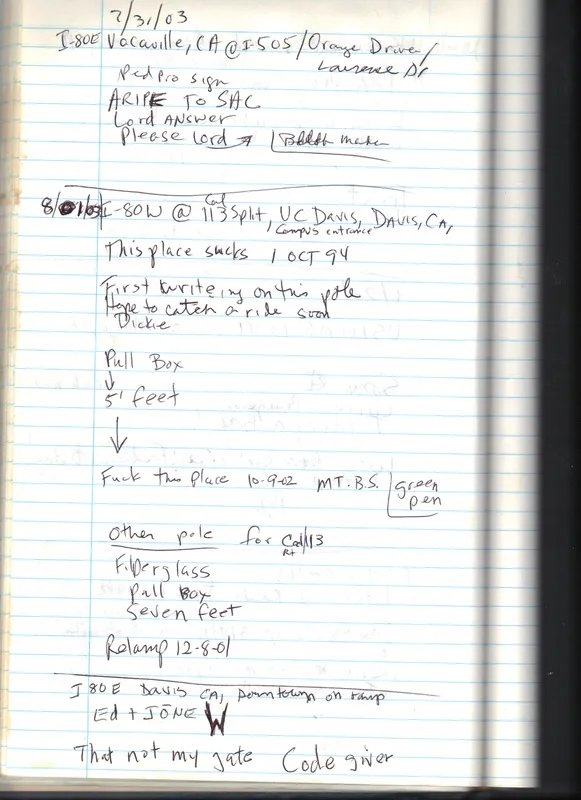 7/31/03
I-80E Vacaville, CA @ I-505/Orange Drive/
Lawrence Dr
Ped Pro sign
A RIPE TO SAC
Lord ANSWER
Please Lord →
8/01/03 I-80W @ Cal 113 Split, UC Davis, DAVIS, CA,
Campus entrance
This place sucks 1 OCT 94
First writeing on this pole
Hope to catch a ride soon
Dickie
Pull Box
↓
5' feet
↓
Fuck this place 10-9-02 MT.B.S. green
pen
Other pole for Cal 113
Rt
Fiberglass
Pull Box
Seven feet
Relamp 12-8-01
I 80 E Davis CA, Downtown on ramp
Ed + JONE W
That not my gate Code giver